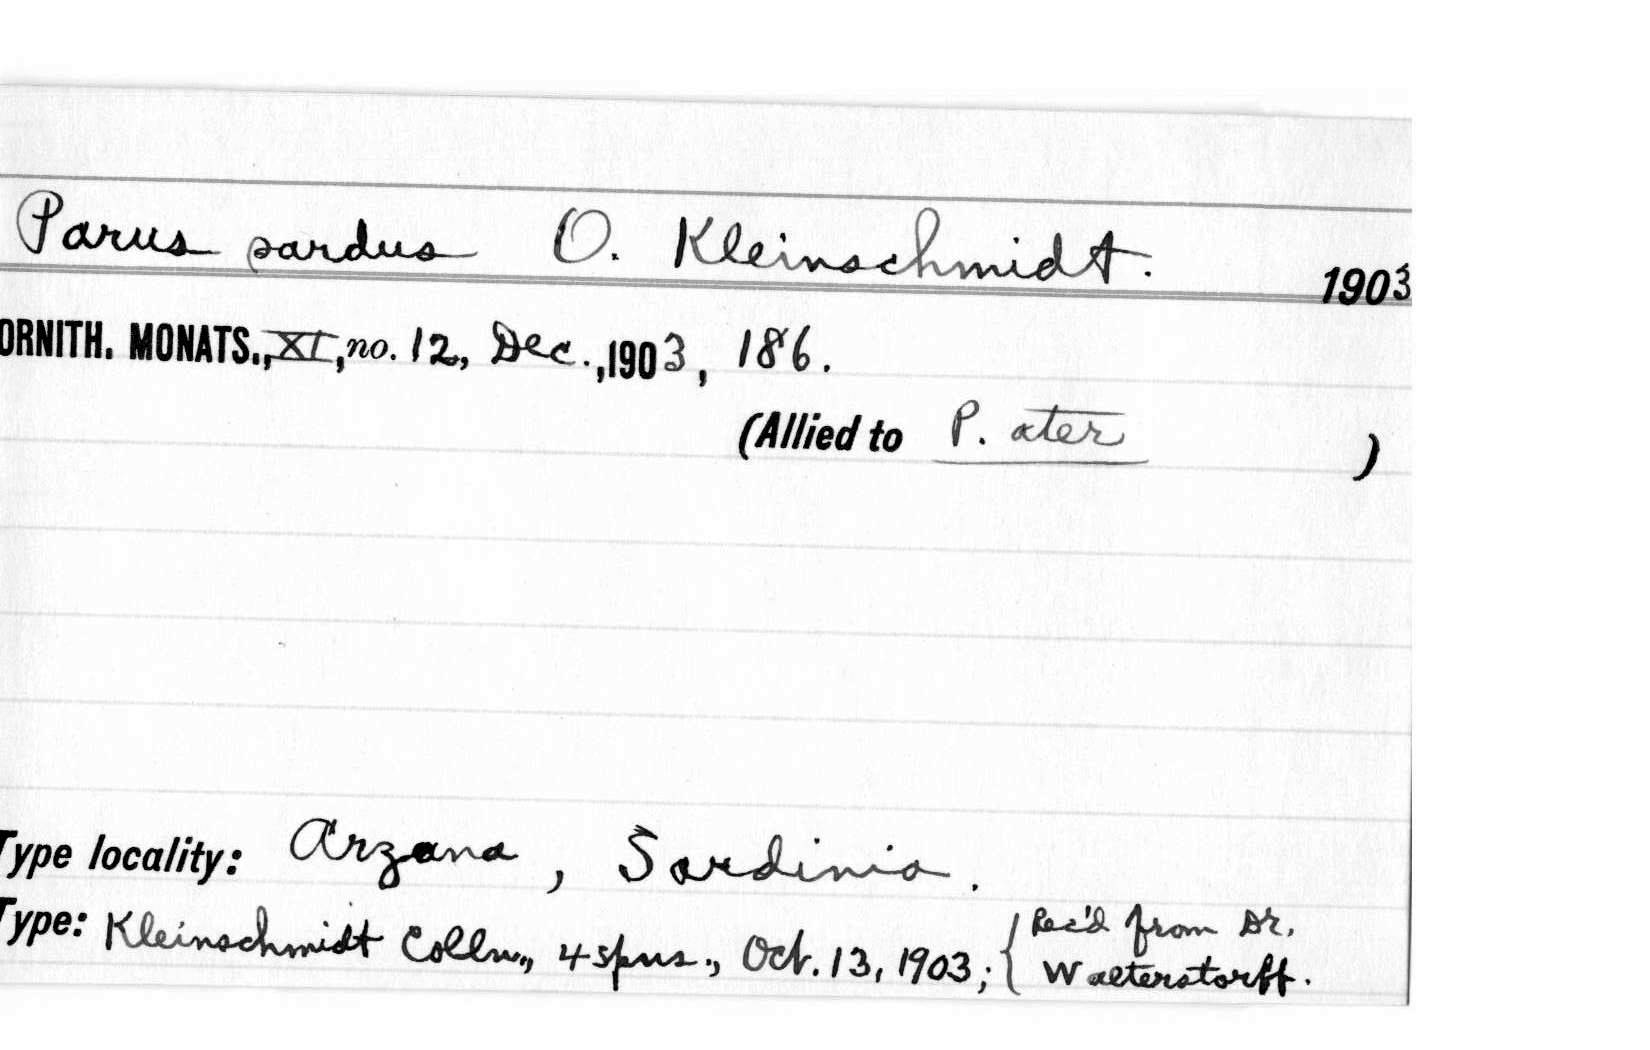 Parus sardus O. Kleinschmidt. 1903
ORNITH. MONATS., XI, no. 12, Dec., 1903, 186.
(Allied to P. ater )
Type locality: Arzana, Sardinia.
Type: Kleinschmidt Colln., 4 spns., Oct. 13, 1903; { Rec'd from Dr.
Walterstorff.